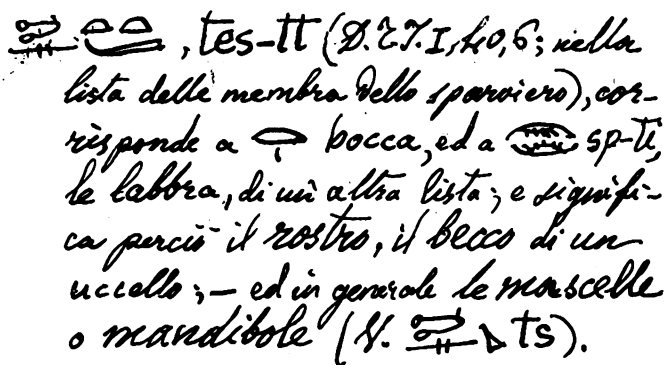 , tes-tt (D.T.I, 40, 6; nella
lista delle membra dello sparviero), cor-
risponde a bocca, ed a sp-ti,
le labbra, di un altra lista; e signifi-
ca perciò il rostro, il becco di un
uccello; — ed in generale le mascelle
o mandibole (V. ts).